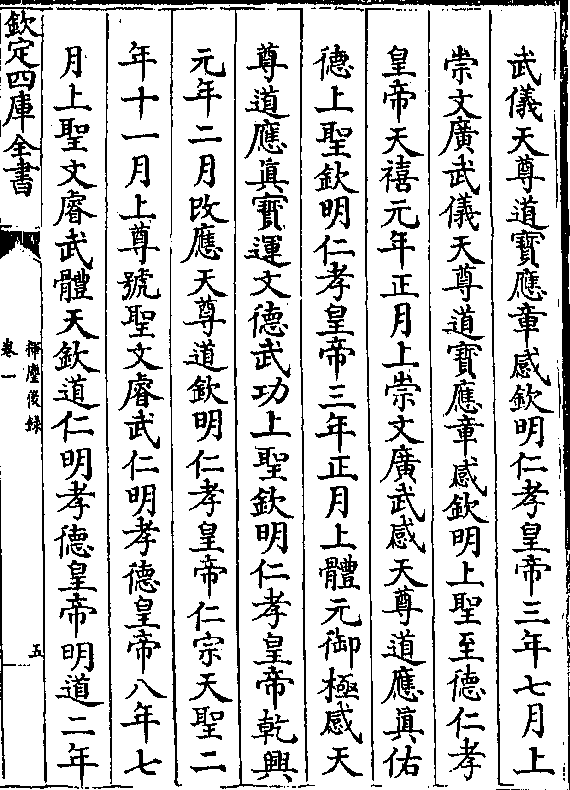 武儀天尊道寳應章感欽明仁孝皇帝三年七月上
崇文廣武儀天尊道寳應章感欽明上聖至德仁孝
皇帝天禧元年正月上崇文廣武感天尊道應眞佑
德上聖欽明仁孝皇帝三年正月上體元御極感天
尊道應眞寳運文德武功上聖欽明仁孝皇帝乾興
元年二月改應天尊道欽明仁孝皇帝仁宗天聖二
年十一月上尊號聖文睿武仁明孝德皇帝八年七
月上聖文睿武體天欽道仁明孝德皇帝明道二年
欽定四庫全書
揮麈後録
卷一
五